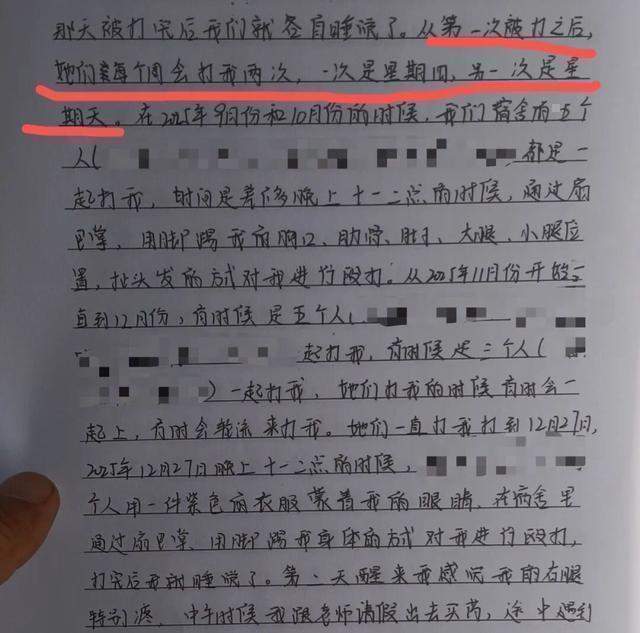 那天被打完后我们就各自睡觉了。从第一次被打之后,
她们每个周会打我两次,一次是星期四,另一次是星
期天。在2025年9月份和10月份的时候,我们宿舍有五个
人( 都是一
起打我,时间是差不多晚上十一二点的时候,通过扇
巴掌、用脚踢我的胸口、肋骨、肚子、大腿、小腿位
置,扯头发的方式对我进行殴打。从2025年11月份开始一
直到12月份,有时候是五个人(
一起打我,有时候是三个人(
)一起打我,她们打我的时候有时会一
起上,有时会轮流来打我。她们一直打我打到12月27日,
2025年12月27日晚上十一二点的时候,
个人用一件紫色的衣服蒙着我的眼睛,在宿舍里
通过扇巴掌、用脚踢我身体的方式对我进行殴打,
打完后我就睡觉了。第二天醒来我感觉我的右腿
特别疼,中午时候我跟老师请假出去买药,途中遇到